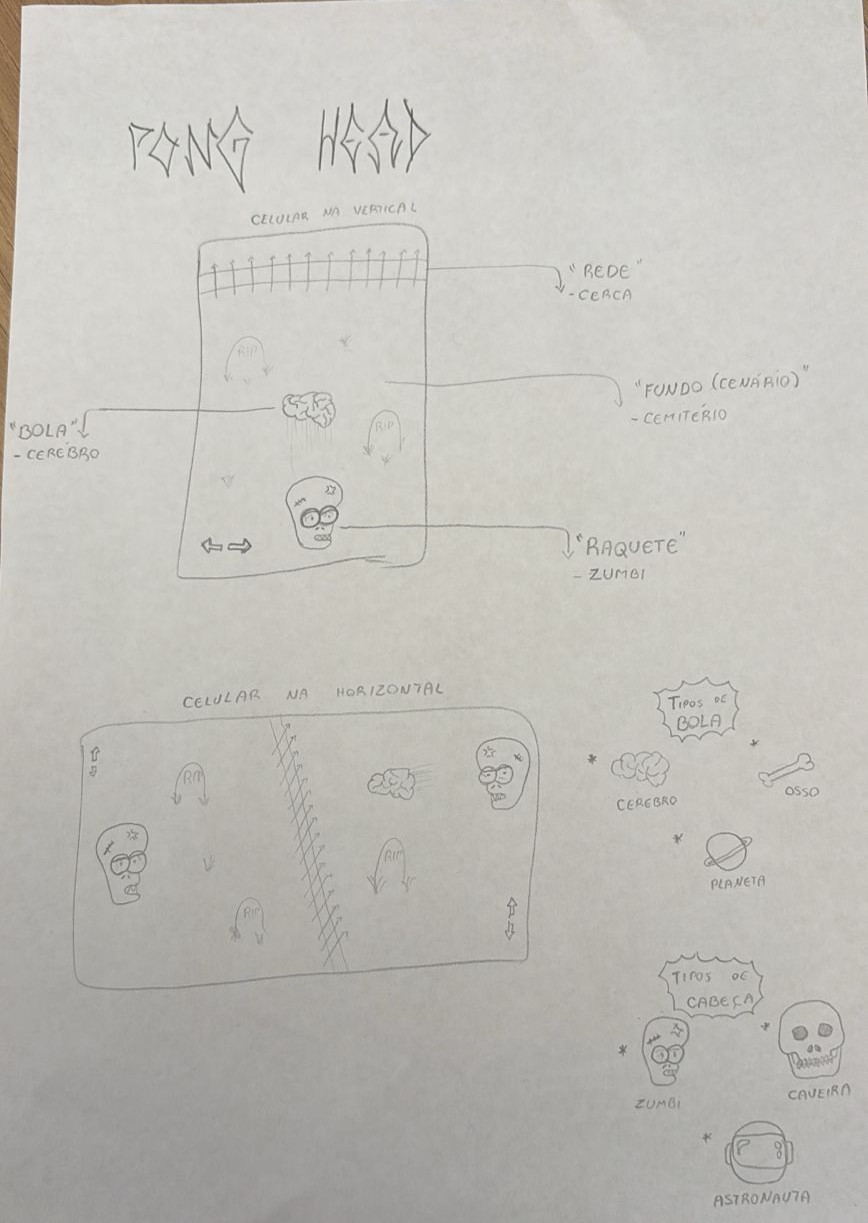 PONG HEAD
CELULAR NA VERTICAL
"REDE"
- CERCA
RIP
"FUNDO (CENÁRIO)"
- CEMITÉRIO
"BOLA"
- CERÉBRO
RIP
"RAQUETE"
- ZUMBI
CELULAR NA HORIZONTAL
RIP
RIP
RIP
TIPOS DE
BOLA
* CEREBRO
* OSSO
* PLANETA
TIPOS DE
CABEÇA
* ZUMBI
* CAVEIRA
* ASTRONAUTA